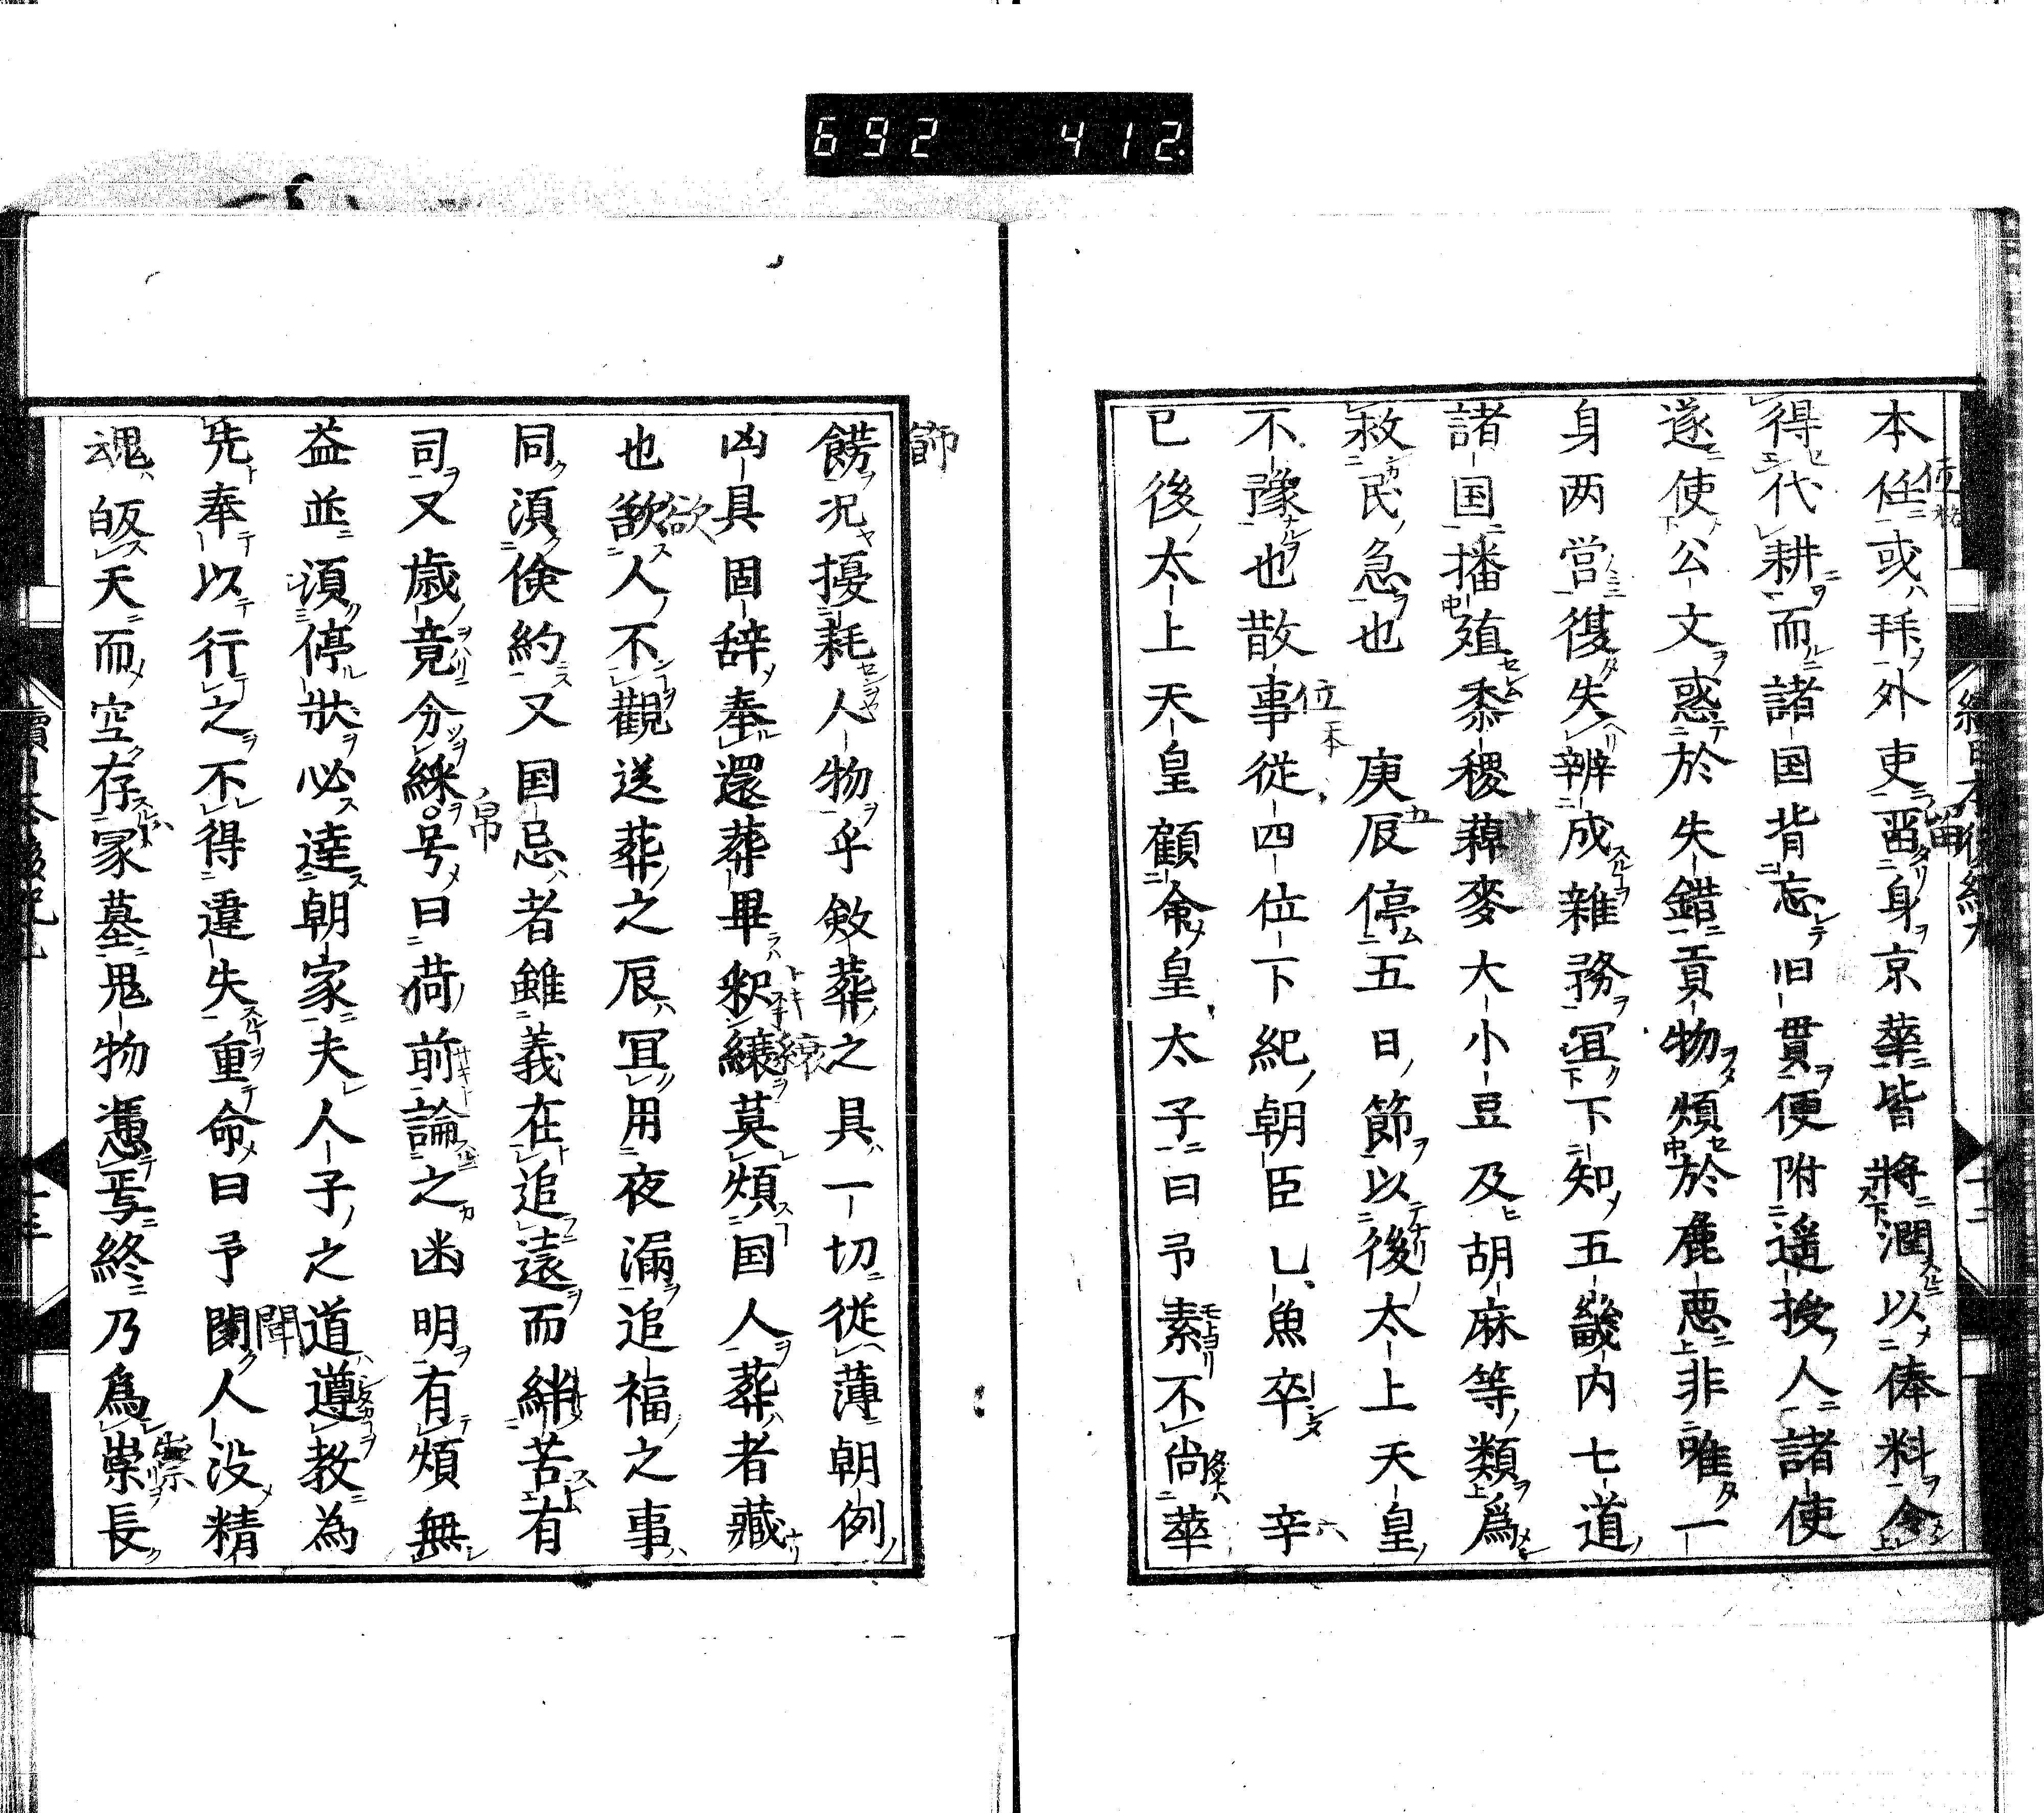 692 412.
本任或拜外吏畱身京華皆將潤以俸料令
得代耕而諸国背忘旧貫便附遥授人諸使
遂使公文惑於失錯貢物煩於麁悪非唯一
身两営復失辨成雑務冝下知五畿内七道
諸国播殖黍稷䅌麥大小豆及胡麻等類爲
救民急也 庚辰停五日節以後太上天皇
不豫也散事從四位下紀朝臣乚魚卒 辛
已後太上天皇顧命皇太子曰予素不尚華
餝况擾耗人物乎斂葬之具一切從薄朝例
凶具固辞奉還葬畢釈縗莫煩国人葬者藏
也欲人不觀送葬之辰冝用夜漏追福之事
同須倹約又国忌者雖義在追遠而絆苦有
司又歳竟分綵号曰荷前論之幽明有煩無
益並須停狀必達朝家夫人子之道遵教為
先奉以行之不得違失重命曰予聞人没精
魂皈天而空存冢墓鬼物憑焉終乃爲祟長